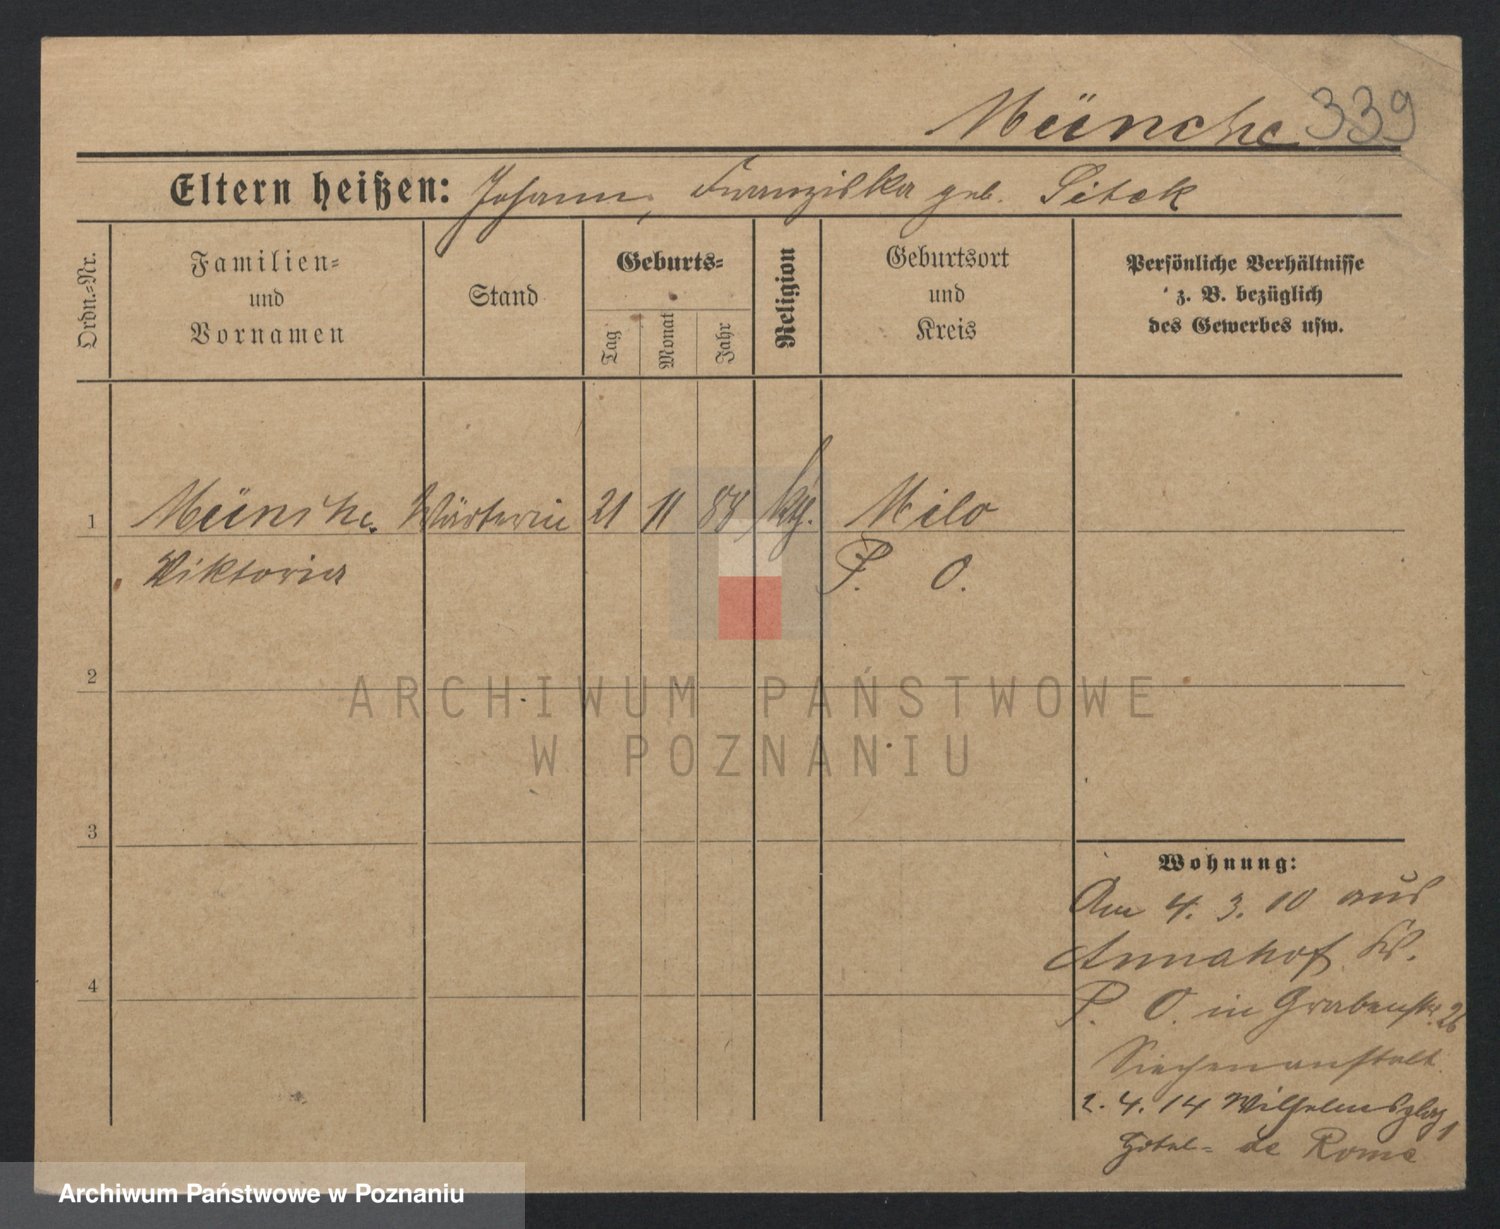 Münche 339
Eltern heißen: Johann, Franziska geb. Sitek
Ordn.-Nr.
Familien- und Vornamen
Stand
Geburts-
Tag
Monat
Jahr
Religion
Geburtsort und Kreis
Persönliche Verhältnisse
z. B. bezüglich
des Gewerbes usw.
1 Münche. Wärterin 21 11 88 kth. Milo
Viktoria P. O.
2
3
4
Wohnung:
Am 4. 3. 10 aus
Annahof Kr.
P. O. in Grabenstr. 26
Siechenanstalt.
2. 4. 14 Wilhelmsplatz 1
Hotel- de Rome
ARCHIWUM PAŃSTWOWE
W POZNANIU
Archiwum Państwowe w Poznaniu